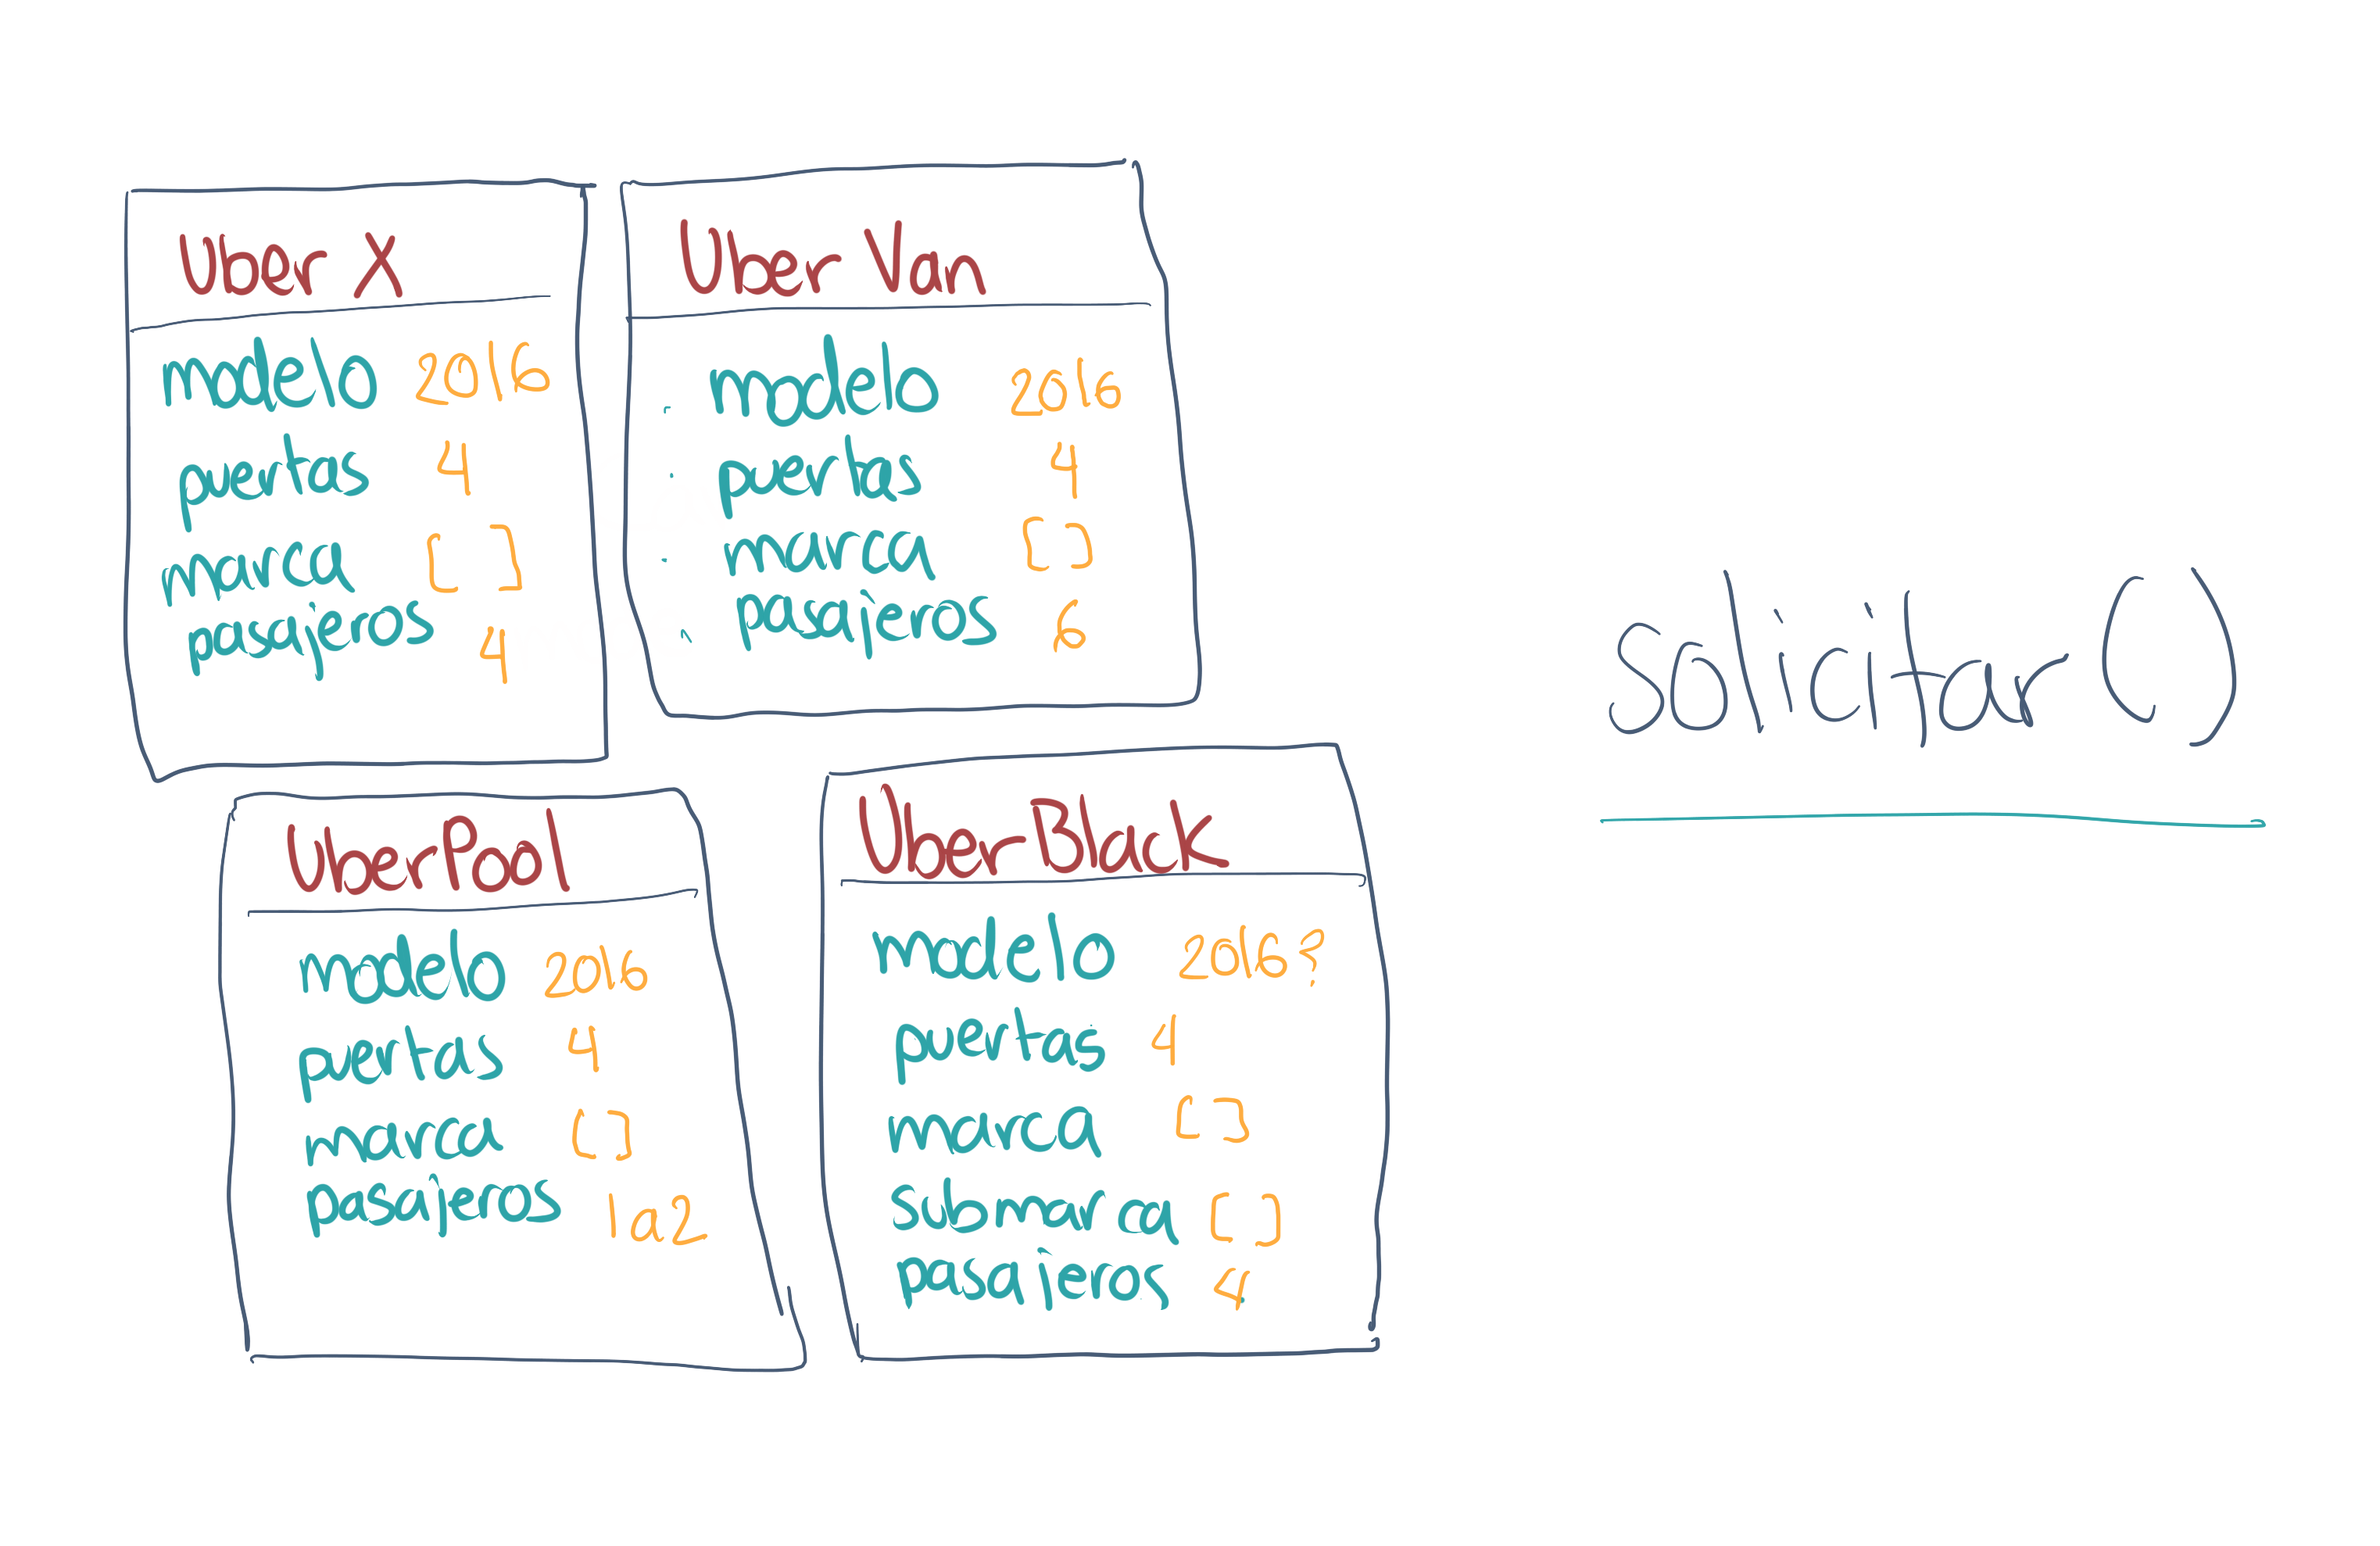 Uber X
modelo 2016
puertas 4
marca [ ]
pasajeros 4
Uber Van
modelo 2016
puertas 4
marca [ ]
pasajeros 6
UberPool
modelo 2016
puertas 4
marca [ ]
pasajeros 1a2
Uber Black
modelo 2016?
puertas 4
marca [ ]
submarca [ ]
pasajeros 4
solicitar ( )